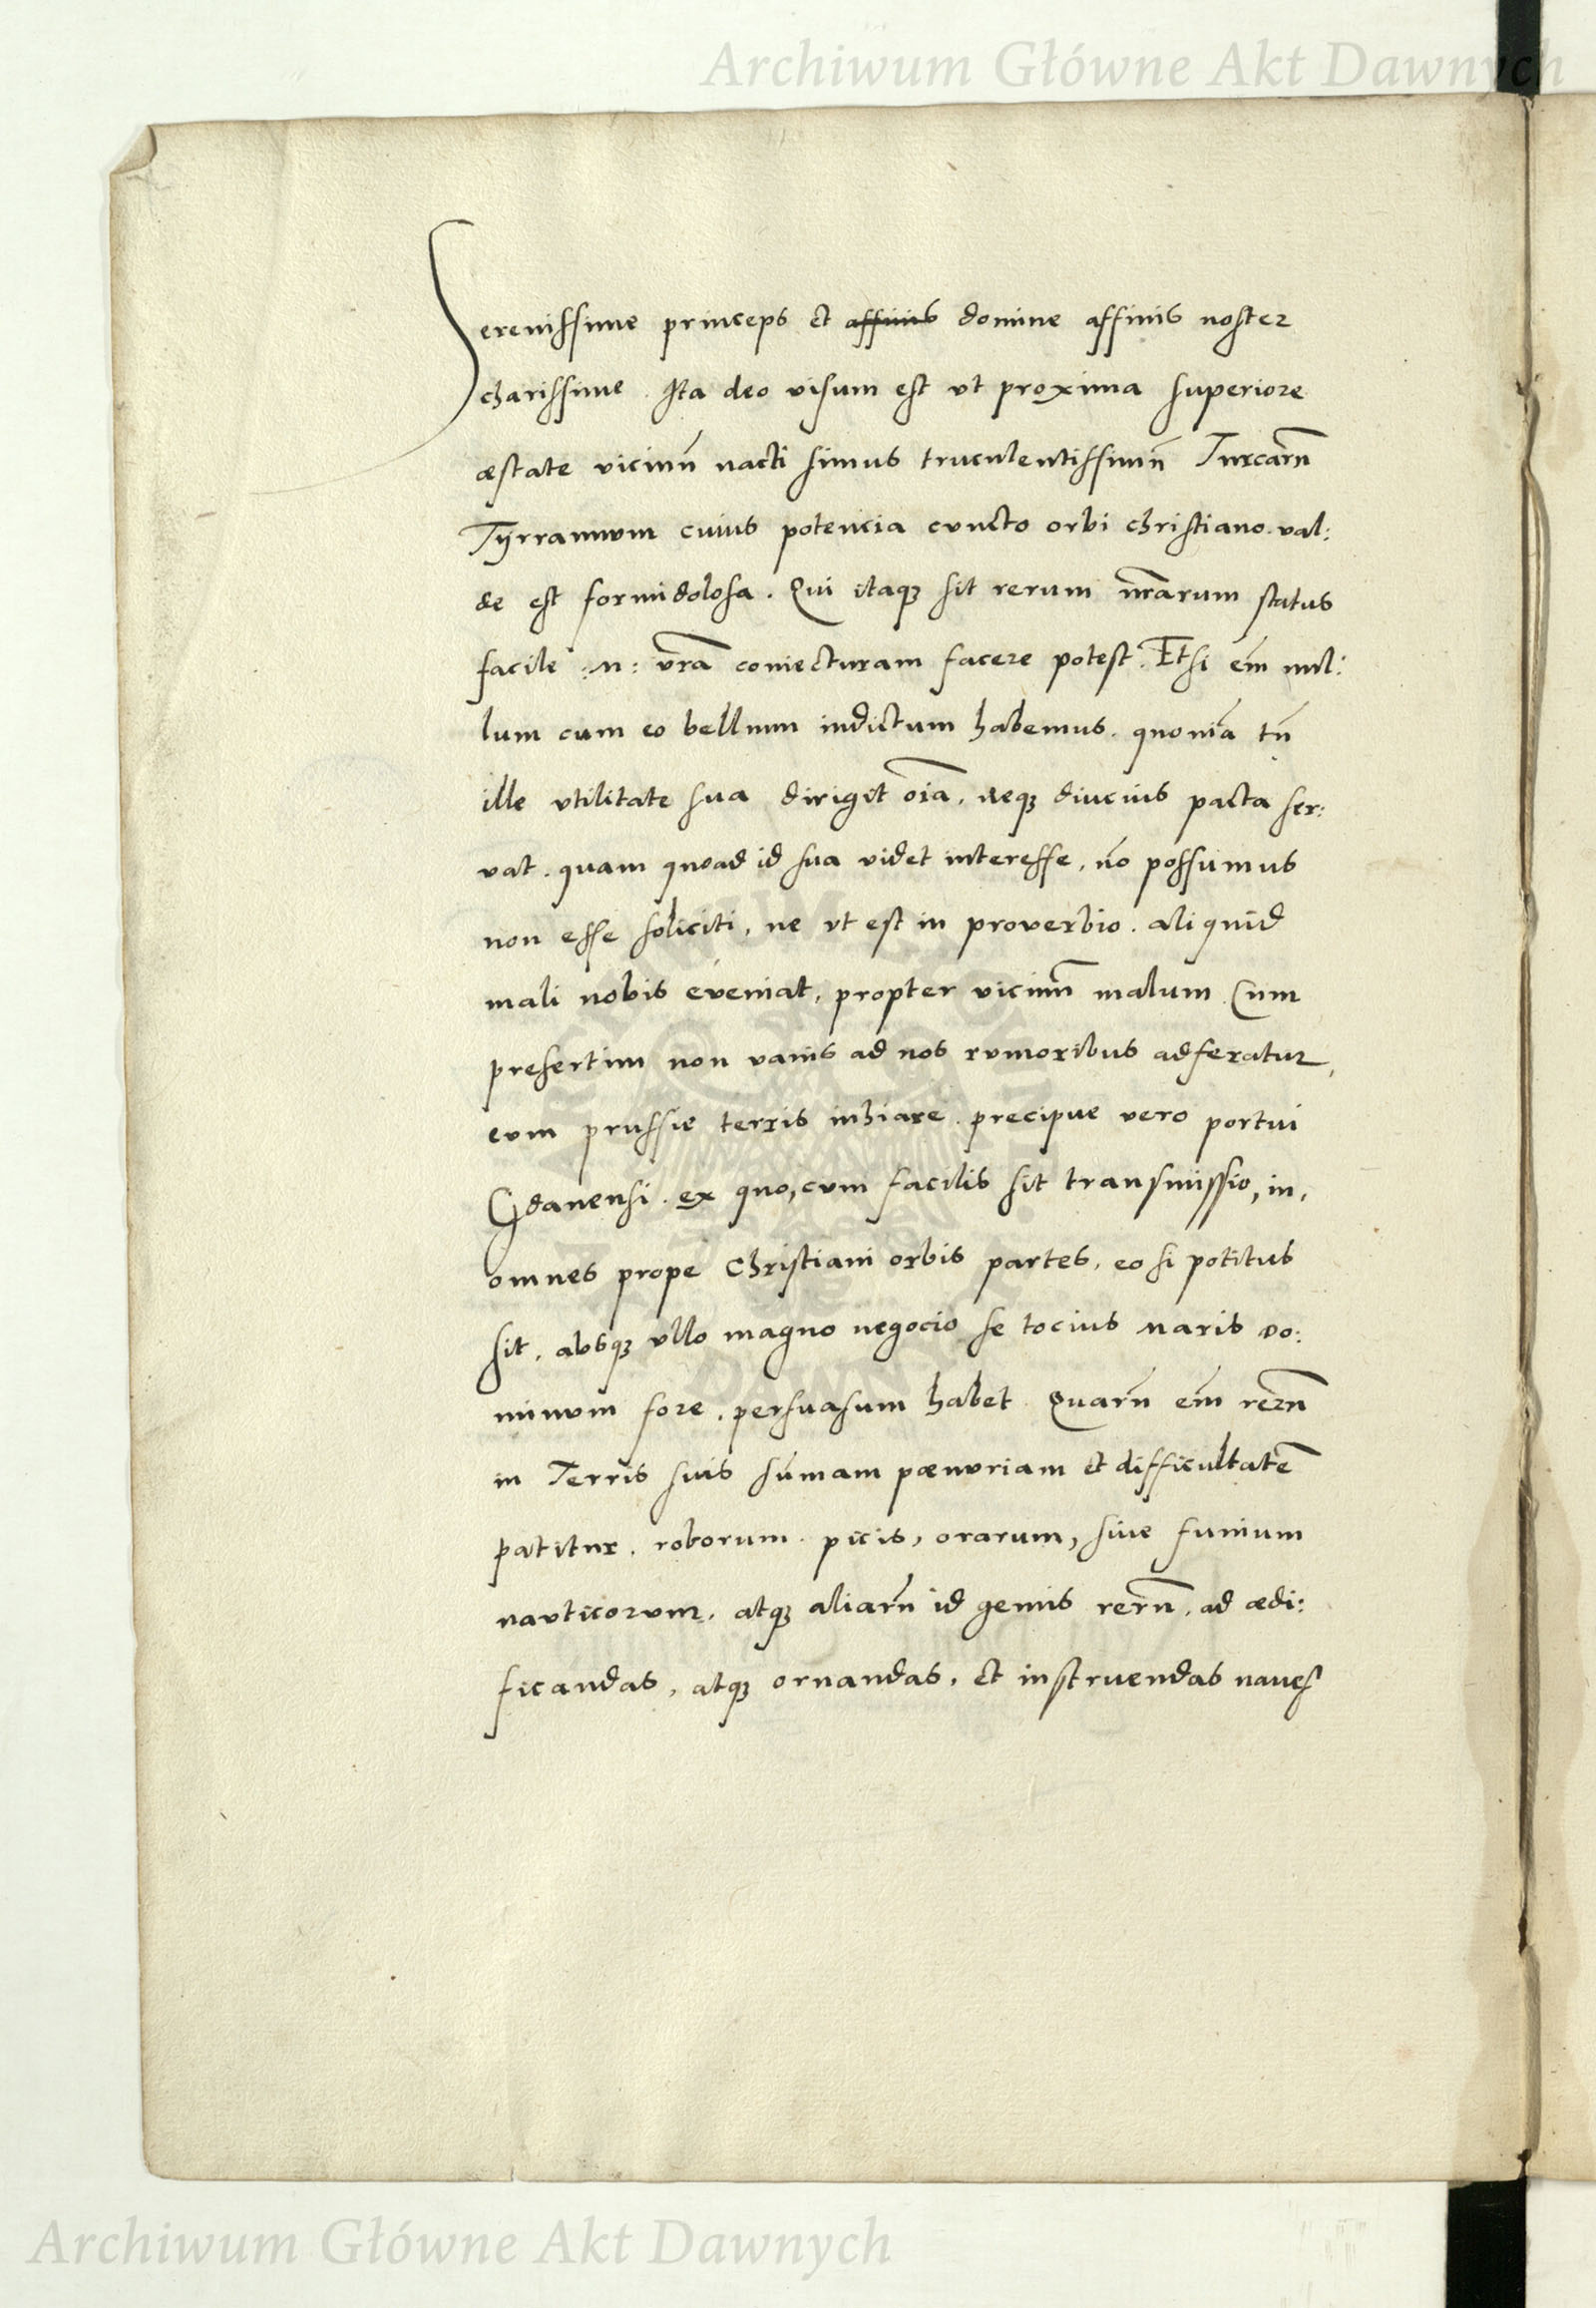 Archiwum Główne Akt Dawnych
Serenissime princeps et affinis domine affinis noster
charissime. Ita deo visum est vt proxima superiore
æstate vicinũ nacti simus truculentissimũ Turcarũ
Tyrannum cuius potencia cuncto orbi christiano. val:
de est formidolosa. Qui itaqꝫ sit rerum nr̃arum status
facile :M: vr̃a coniecturam facere potest. Etsi em̃ nul:
lum cum eo bellum indictum habemus. quoniã tñ
ille vtilitate sua dirigit oı̃a. neqꝫ diucius pacta ser:
vat. quam quoad id sua videt interesse, nõ possumus
non esse soliciti, ne vt est in proverbio. aliquid
mali nobis eveniat, propter vicinũ malum. Cum
presertim non vanis ad nos rumoribus adferatur,
eum prussie terris inhiare. precipue vero portui
Gdanensi. ex quo, cum facilis sit transmissio, in,
omnes prope Christiani orbis partes, eo si potitus
sit, absqꝫ vllo magno negocio se tocius maris do:
minum fore. persuasum habet. Quarũ em̃ rerũ
in Terris suis sum̃am pænuriam et difficultatẽ
patitur. roborum. picis, orarum, sive funium
nauticorum, atqꝫ aliarũ id genus rerũ, ad ædi:
ficandas, atqꝫ ornandas, et instruendas naves
Archiwum Główne Akt Dawnych